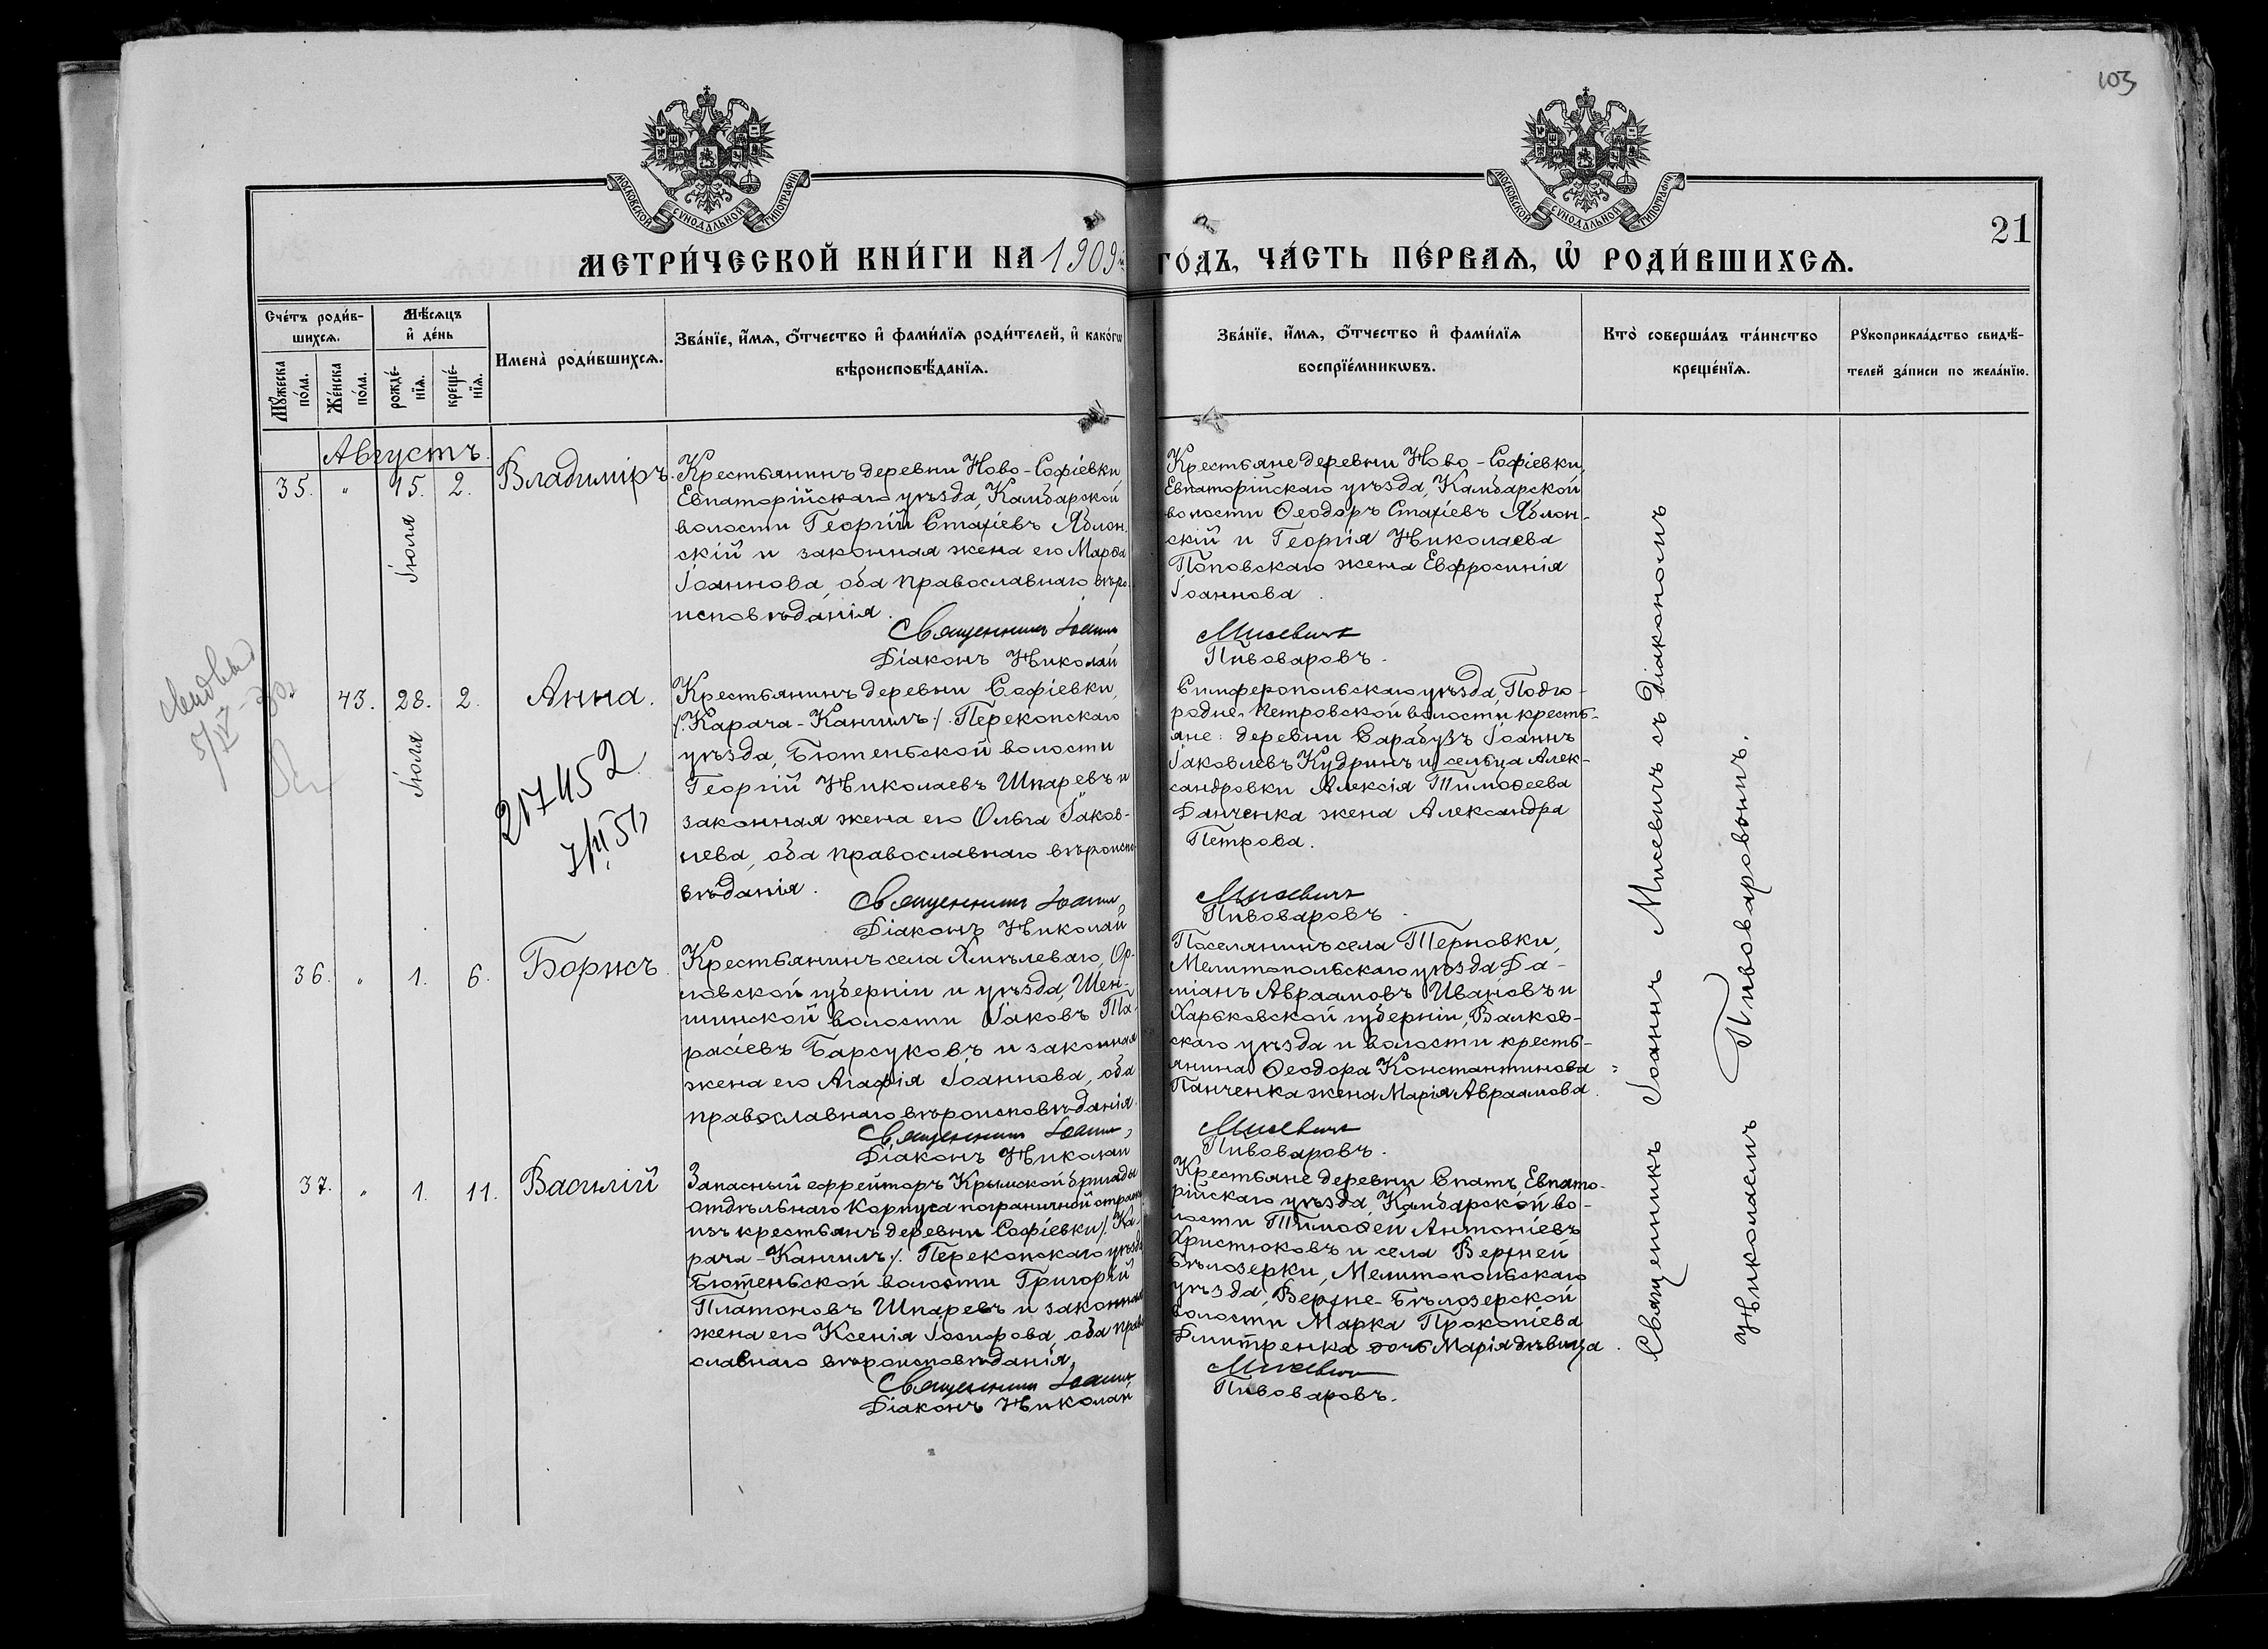 103
МОСКОВСКОЙ СѴНОДАЛЬНОЙ ТИПОГРАФІИ
МОСКОВСКОЙ СѴНОДАЛЬНОЙ ТИПОГРАФІИ
21
МЕТРИ́ЧЕСКОЙ КНИ́ГИ НА 1909й ГО́ДЪ, ЧА́СТЬ ПЕ́РВАѦ, Ѡ҆ РОДИ́ВШИХСѦ.
Сче́тъ роди́в-
шихсѧ.
Мꙋ́жеска
по́ла.
Же́нска
по́ла.
Мѣ́сѧцъ
и҆ де́нь
рожде́-
нїѧ.
креще́-
нїѧ.
Имена̀ роди́вшихсѧ.
Зва́нїе, и҆́мѧ, ѻ҆́тчество и҆ фами́лїѧ роди́телей, и҆ како́гѡ
вѣроисповѣ́данїѧ.
Зва́нїе, и҆́мѧ, ѻ҆́тчество и҆ фами́лїѧ
воспрїе́мникѡвъ.
Кто̀ соверша́лъ та́инство
креще́нїѧ.
Рꙋкоприкла́дство свидѣ́-
телей за́писи по жела́нїю.
Августъ.
35. " 15. 2. Владиміръ.
Іюля
Крестьянинъ деревни Ново-Софіевки,
Евпаторійскаго уѣзда, Камбарской
волости Георгій Стахіевъ Яблон-
скій и законная жена его Марѳа
Іоаннова, оба православнаго вѣро-
исповѣданія.
Священникъ Іоаннъ
Діаконъ Николай
Крестьяне деревни Ново-Софіевки,
Евпаторійскаго уѣзда, Камбарской
волости Ѳеодоръ Стахіевъ Яблон-
скій и Георгія Николаева
Поповскаго жена Евфросинія
Іоаннова.
Мисевичъ
Пивоваровъ.
43. 28. 2. Анна.
Іюля
217452
Крестьянинъ деревни Софіевки,
/.Карача-Кангилъ/. Перекопскаго
уѣзда, Бютеньской волости
Георгій Николаевъ Шпаревъ и
законная жена его Ольга Іаков-
лева, оба православнаго вѣроиспо-
вѣданія.
Священникъ Іоаннъ
Діаконъ Николай
Симферопольскаго уѣзда, Подго-
родне-Петровской волости, кресть-
яне: деревни Сарабузъ Іоаннъ
Іаковлевъ Кудринъ и сельца Алек-
сандровки Алексія Тимоѳеева
Данченка жена Александра
Петрова.
Мисевичъ
Пивоваровъ.
36. " 1. 6. Борисъ.
Крестьянинъ села Хмѣлеваго, Ор-
ловской губерніи и уѣзда, Шен-
шинской волости Іаковъ Та-
расіевъ Барсуковъ и законная
жена его Агафія Іоаннова, оба
православнаго вѣроисповѣданія.
Священникъ Іоаннъ
Діаконъ Николай
Поселянинъ села Терновки,
Мелитопольскаго уѣзда Да-
міанъ Авраамовъ Ивановъ и
Харьковской губерніи, Валков-
скаго уѣзда и волости кресть-
янина Ѳеодора Константинова
Панченка жена Марія Авраамова.
Мисевичъ
Пивоваровъ.
37. " 1. 11. Василій
Запасный ефрейторъ Крымской бригады
отдѣльнаго Корпуса пограничной стражи
изъ крестьянъ деревни Софіевки /.Ка-
рача-Кангилъ/. Перекопскаго уѣзда
Бютеньской волости Григорій
Платоновъ Шпаревъ и законная
жена его Ксенія Іосифова, оба право-
славнаго вѣроисповѣданія.
Священникъ Іоаннъ
Діаконъ Николай
Крестьяне деревни Спатъ Евпато-
рійскаго уѣзда, Камбарской во-
лости Тимоѳей Антоніевъ
Христюковъ и села Верхней
Бѣлозерки, Мелитопольскаго
уѣзда, Верхне-Бѣлозерской
волости Марка Прокопіева
Дмитренка дочь Марія дѣвица.
Мисевичъ
Пивоваровъ.
Священникъ Іоаннъ Мисевичъ съ діакономъ
Николаемъ Пивоваровымъ.